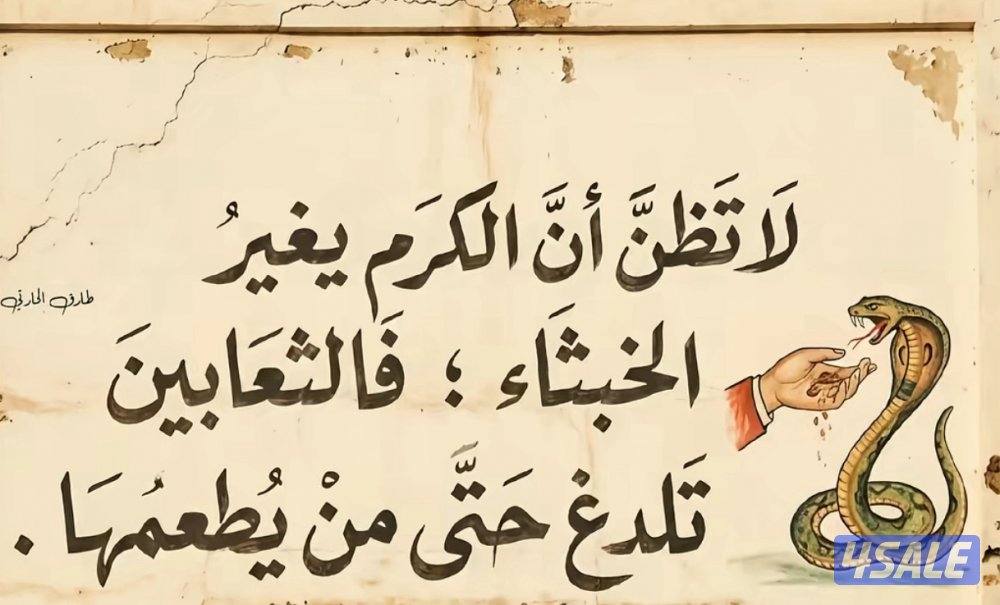 لَا تَظنَّ أنَّ الكرَم يغيرُ
الخبثَاء ؛ فَالثعَابينَ
تَلدغ حَتَّى منْ يُطعمُهَا .
طارق الحارثي
4SALE